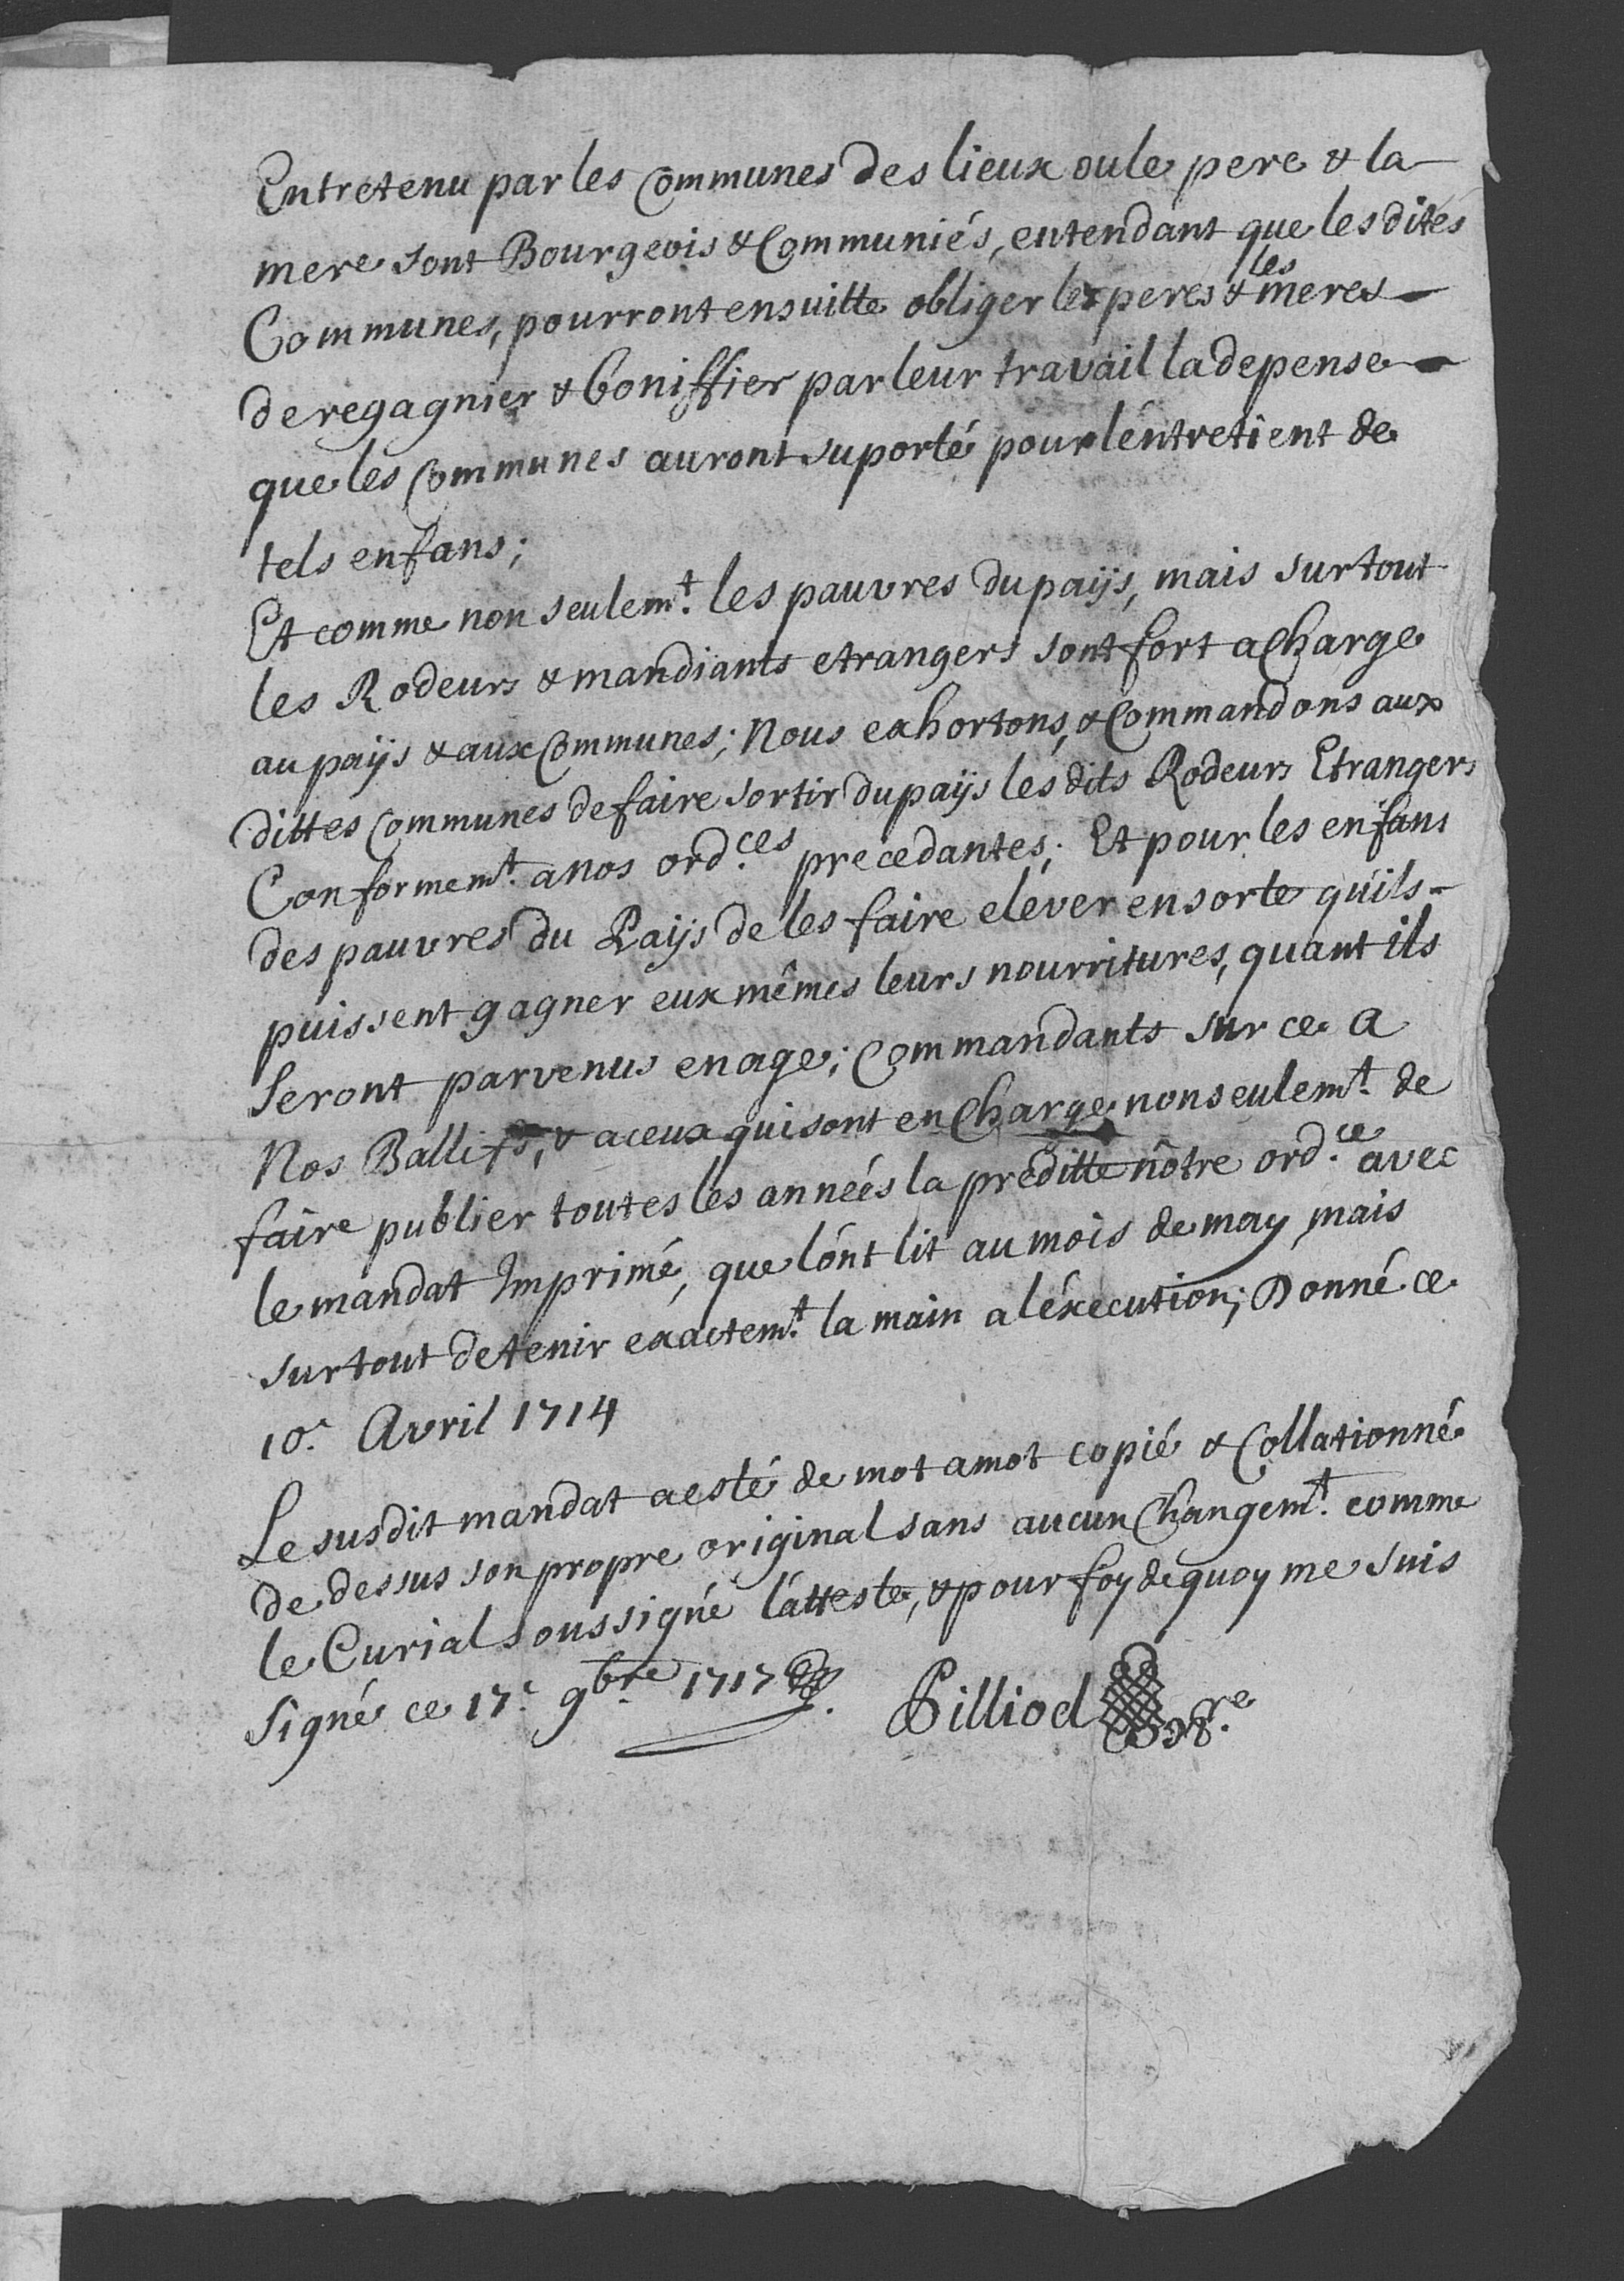 Entretenu par les Communes des lieux ou le pere & la
mere sont Bourgeois & Communiés, entendant que les dites
Communes, pourront ensuitte obliger les peres & les meres
de regagnier & boniffier par leur travail la depense
que les Communes auront suporté pour léntretient de
tels enfans;
Et comme non seulemt. les pauvres du paÿs, mais surtout
les Rodeurs & mandiants etrangers sont fort a Charge
au paÿs & aux Communes; Nous exhortons, & Commandons aux
dittes Communes de faire sortir du paÿs les dits Rodeurs Etrangers
Conformemt. a nos ord.ces precedantes; Et pour les enfans
des pauvres du Paÿs de les faire elever en sorte qu'ils
puissent gagner eux mêmes leurs nourritures, quant ils
seront parvenus en age; Commandants sur ce a
Nos Ballifs, & a ceux qui sont en Charge non seulemt. de
faire publier toutes les années la preditte nôtre ord.ce avec
le mandat Imprimé, que lónt lit au mois de may, mais
surtout de tenir exactemt. la main a léxecution; Donné ce
10.e Avril 1714
Le susdit mandat a esté de mot a mot copié & Collationné
de dessus son propre original sans aucun Changemt. comme
le Curial soussigné l'atteste, & pour foy de quoy me suis
signé ce 17.e 9bre 1717.
Pilliod Nre.